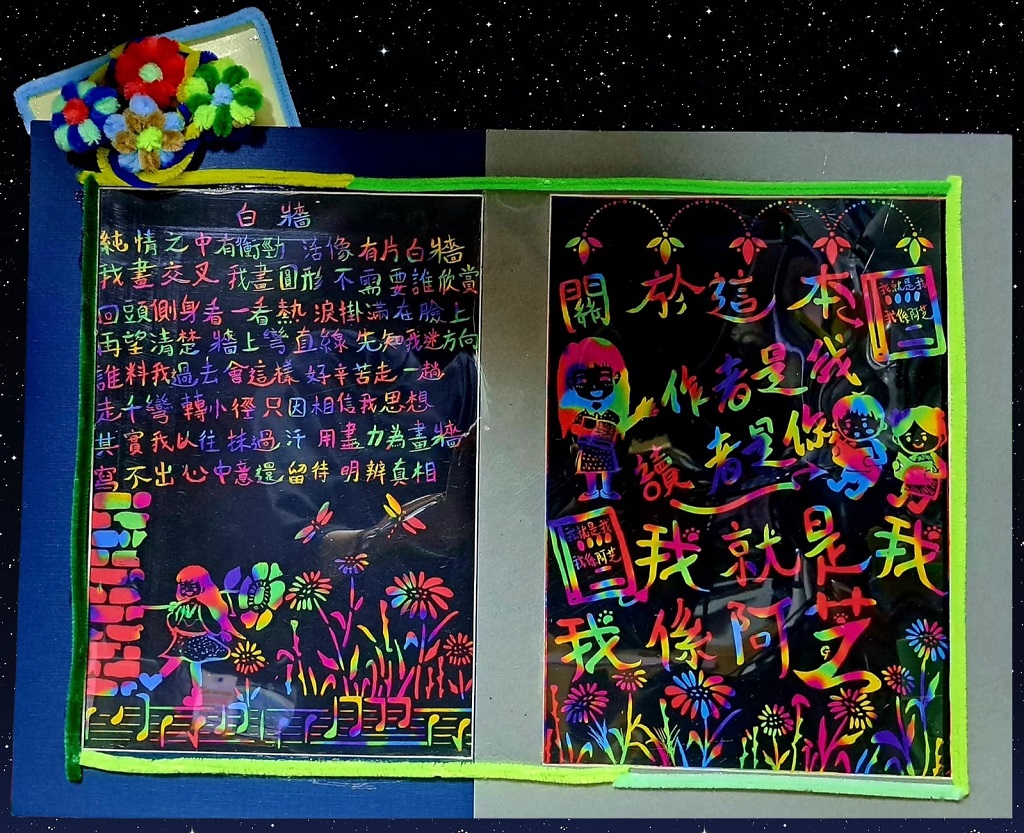 白牆
純情之中有衝勁 活像有片白牆
我畫交叉 我畫圓形 不需要誰欣賞
回頭側身看一看 熱淚掛滿在臉上
再望清楚 牆上彎直線 先知我迷方向
誰料我過去會這樣 好辛苦走一趟
走千彎 轉小徑 只因相信我思想
其實我以往抹過汗 用盡力為畫牆
寫不出心中意 還留待明辨真相
關於這本
我就是我
我係阿芝
作者是我
讀者是你
我就是我
我係阿芝
我就是我
我係阿芝